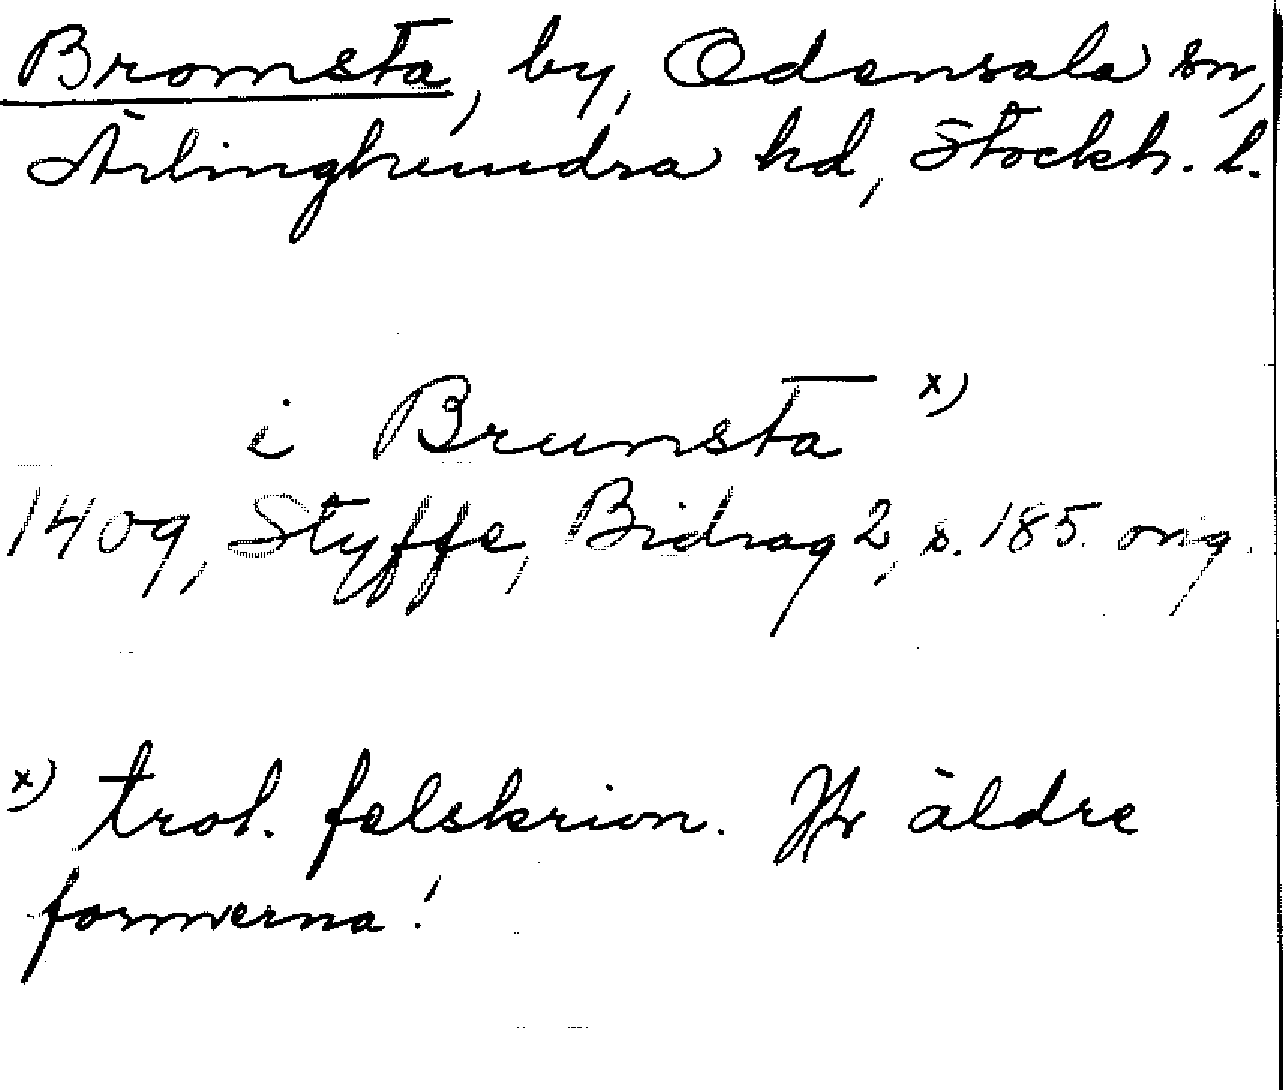 Bromsta, by, Odensala sn,
Ärlinghundra hd, Stockh. l.
i Brunsta x)
1409, Styffe, Bidrag 2, s. 185. orig.
x) trol. felskrivn. Jfr äldre
formerna!